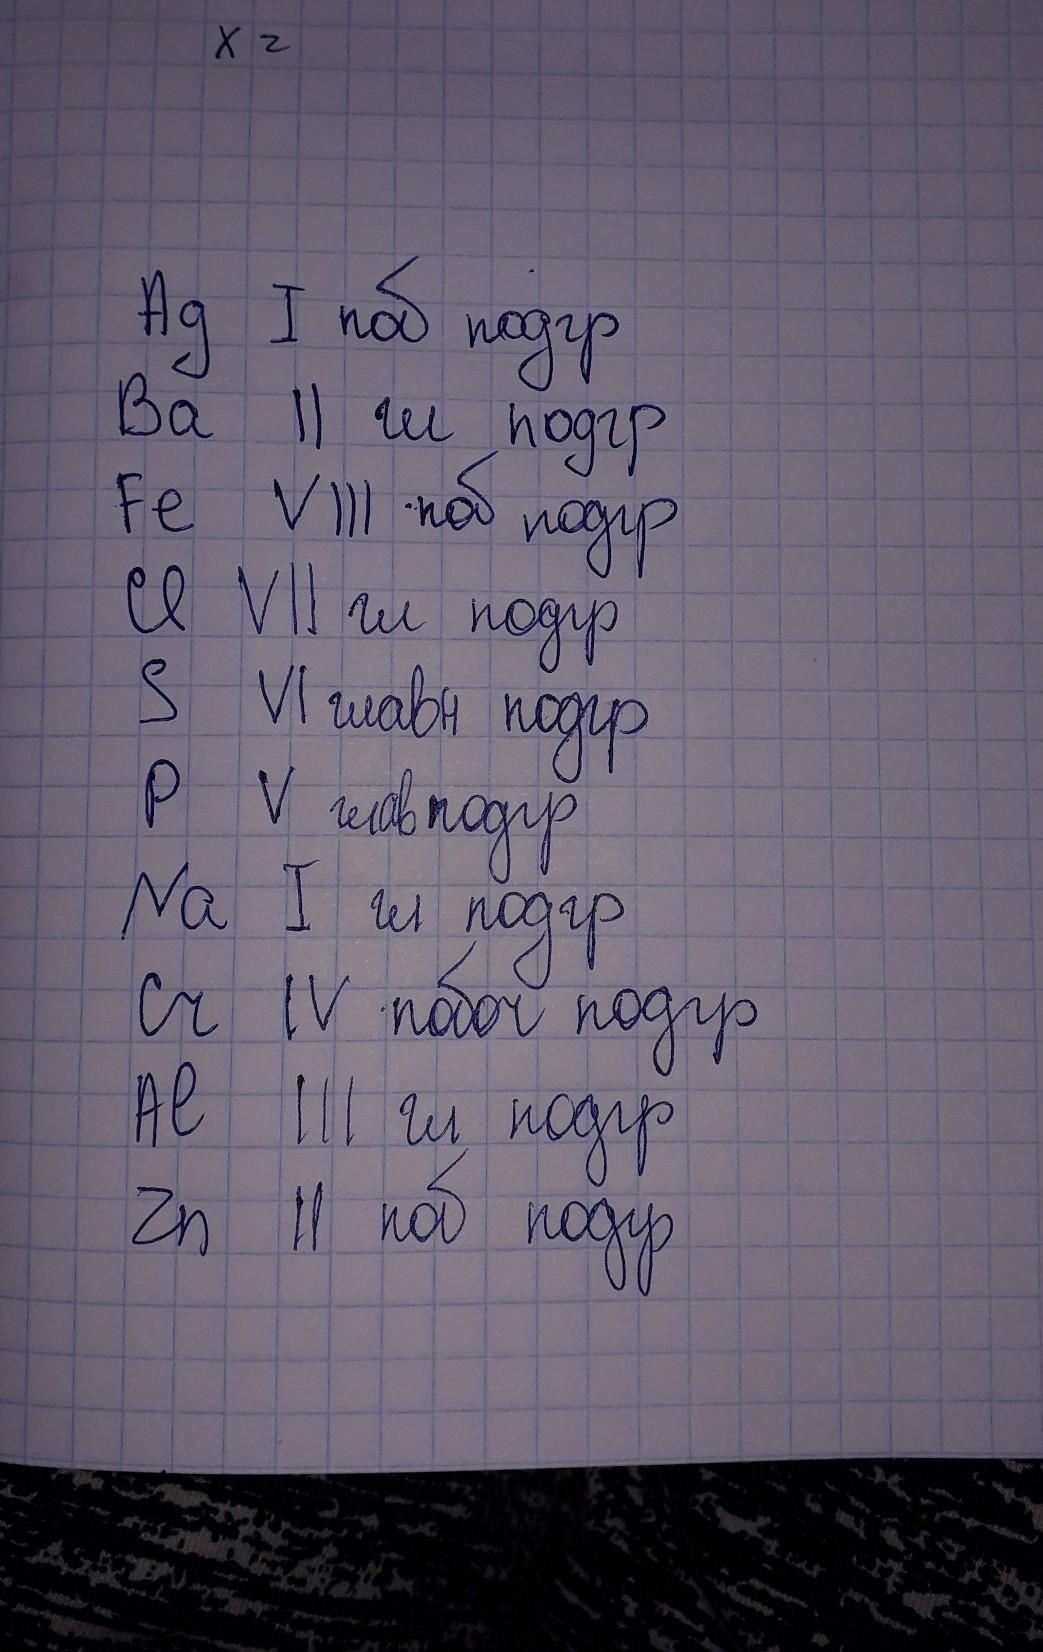 x =
Ag I поб подгр
Ba II гл подгр
Fe VIII поб подгр
Cl VII гл подгр
S VI главн подгр
P V глав подгр
Na I гл подгр
Cr IV побоч подгр
Al III гл подгр
Zn II поб подгр